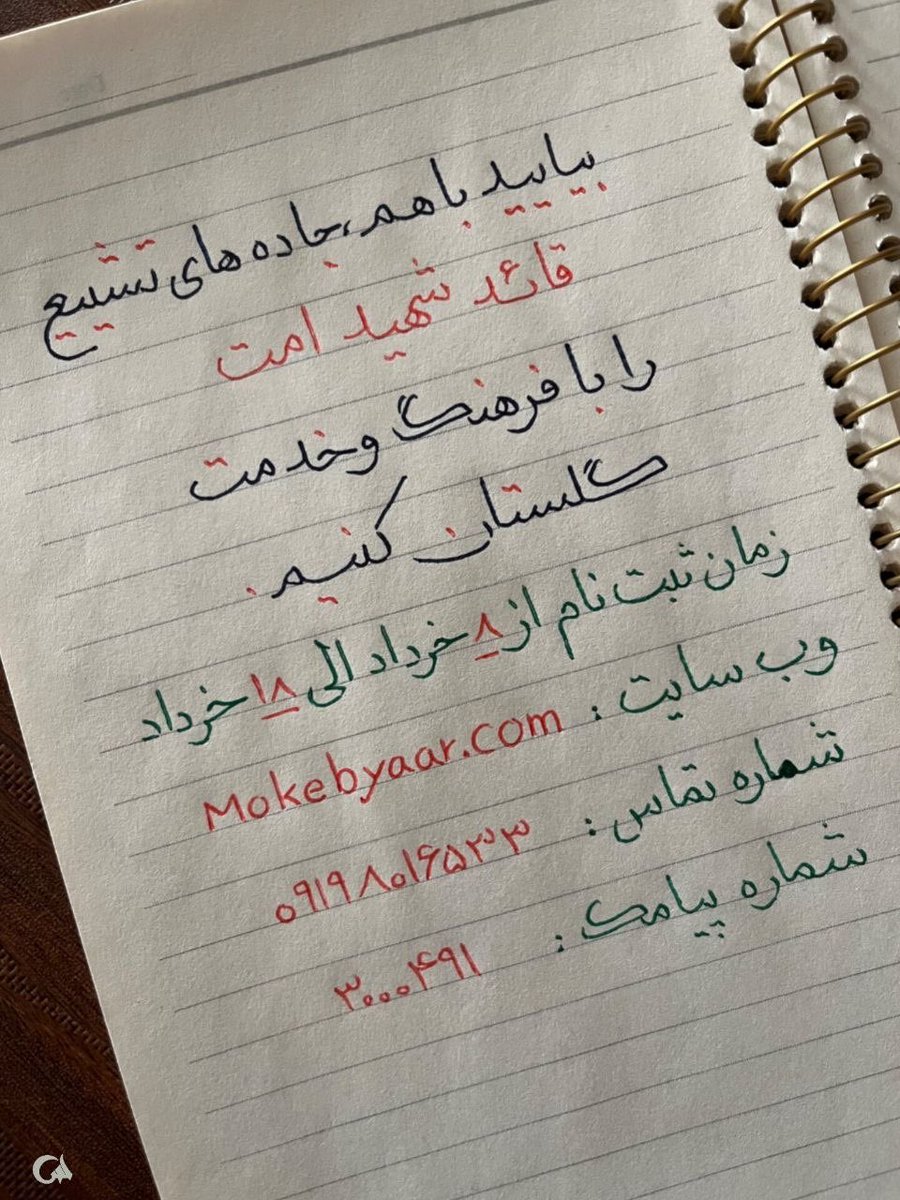 بیایید باهم، جاده های تشییع
قائد شهید امت
را با فرهنگ وخدمت
گلستان کنیم.
زمان ثبت نام از ۸ خرداد الی ۱۸ خرداد
وب سایت : Mokebyaar.com
شماره تماس : ۰۹۱۹۸۰۱۶۵۳۳
شماره پیامک : ۳۰۰۰۴۹۱